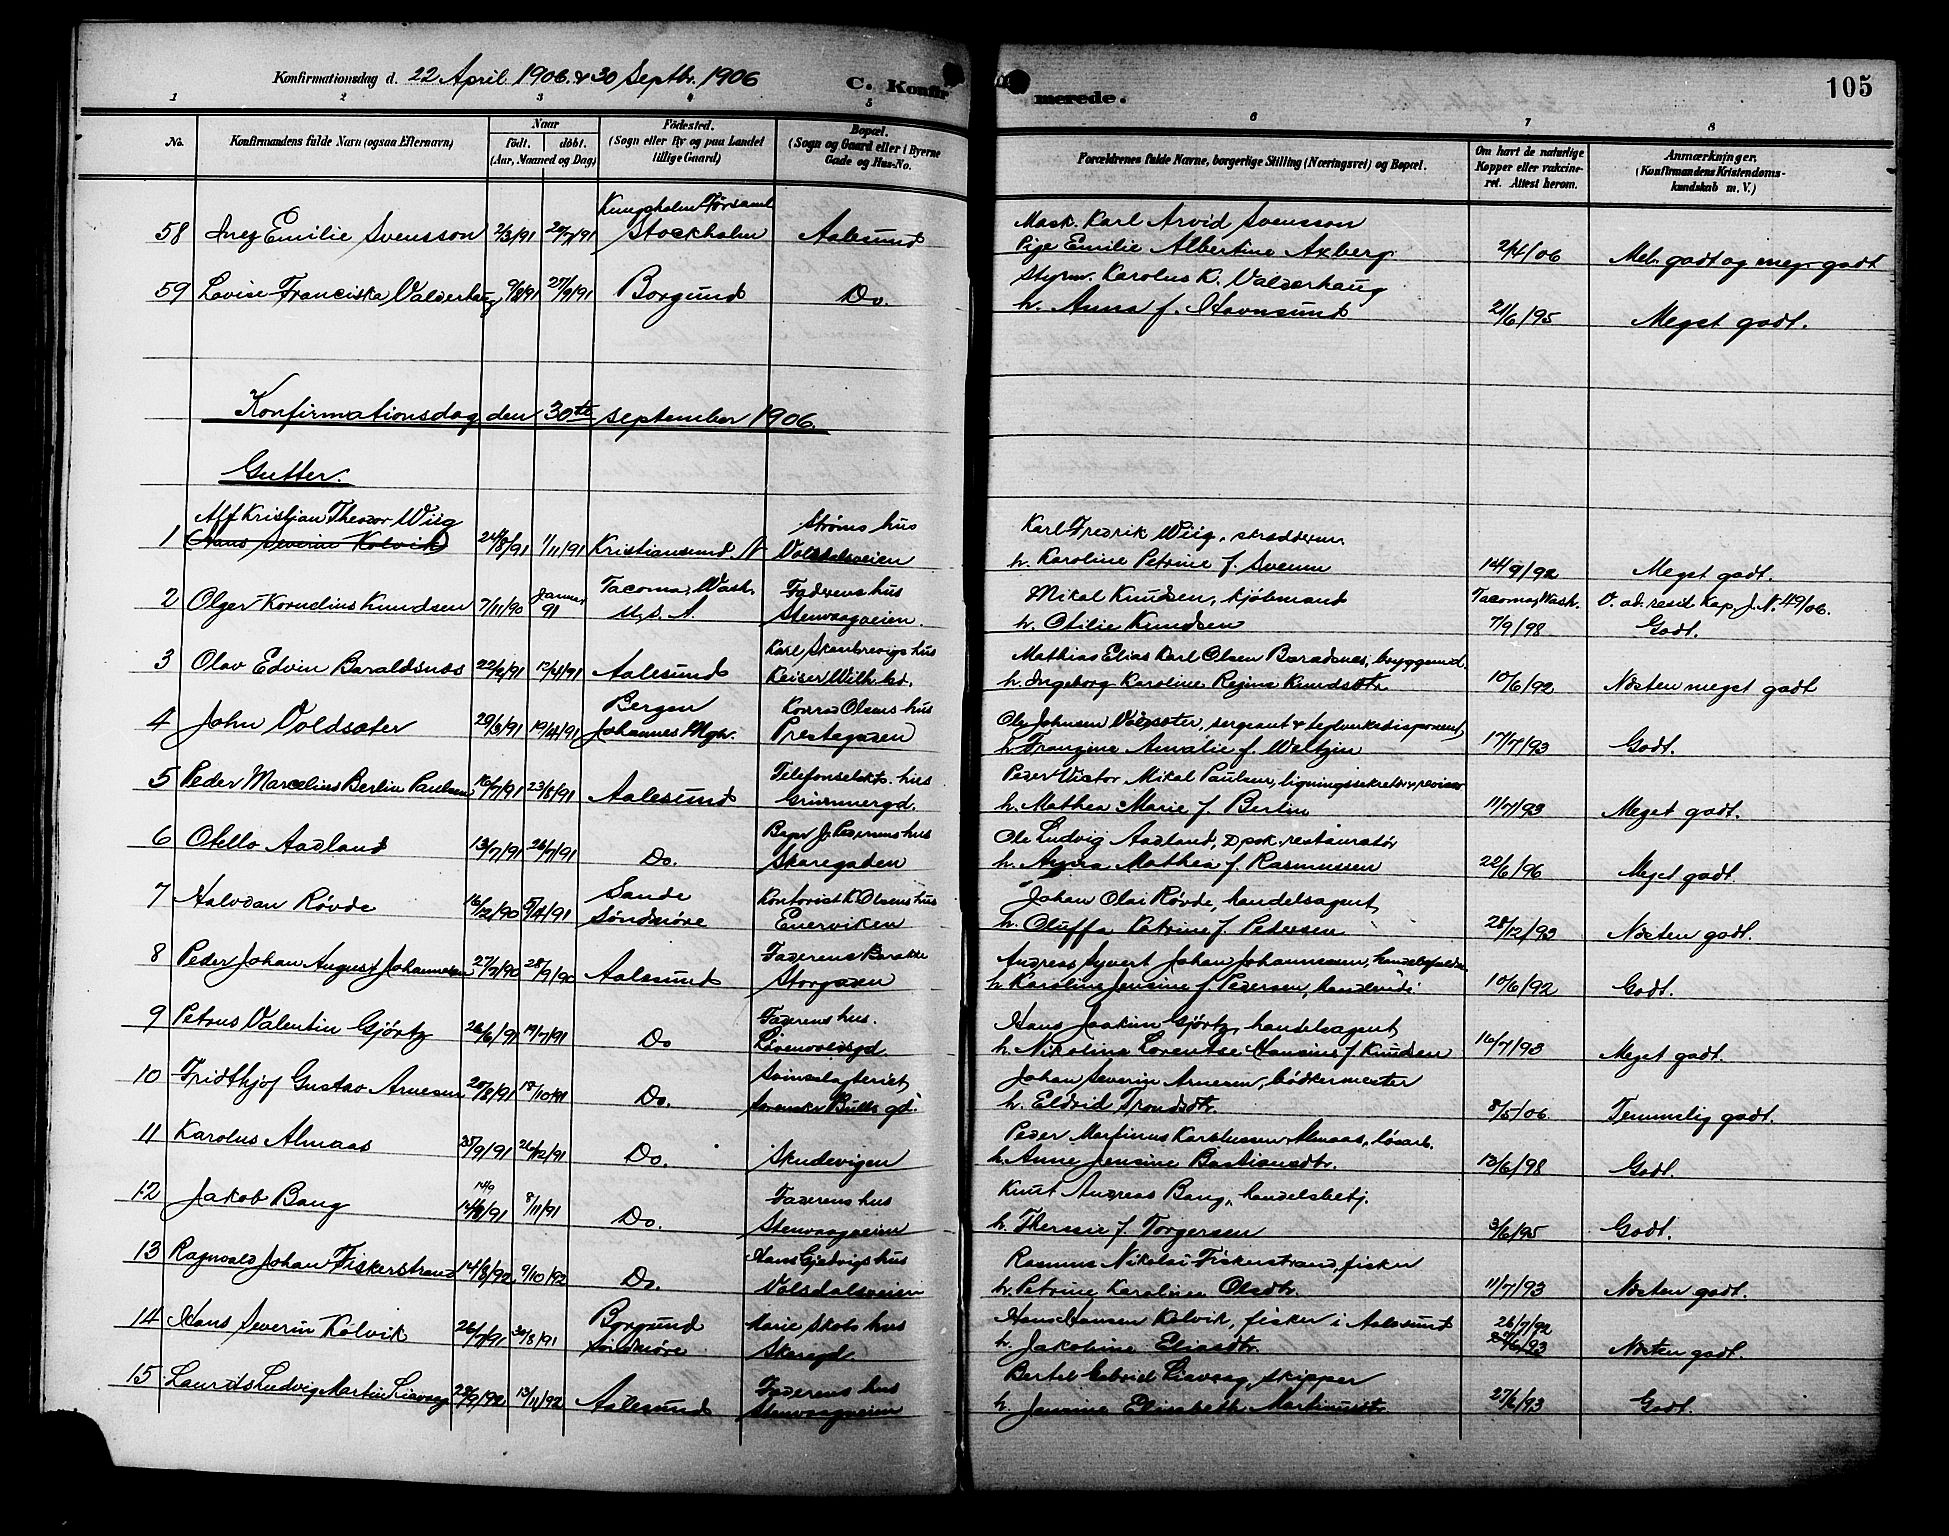 Konfirmationsdag d. 22 April 1906 & 30 Septbr. 1906
C. Konfirmerede.
105
1 2 3 4 5 6 7 8
No.
Konfirmandens fulde Navn (ogsaa Efternavn)
Naar
født. døbt.
(Aar, Maaned og Dag)
Fødested.
(Sogn eller By og paa Landet
tillige Gaard)
Bopæl.
(Sogn og Gaard eller i Byerne
Gade og Hus-No.
Forældrenes fulde Navne, borgerlige Stilling (Næringsvei) og Bopæl.
Om havt de naturlige
Kopper eller vakcine-
ret. Attest herom.
Anmærkninger.
(Konfirmandens Kristendoms-
kundskab m. V.)
58 Inez Emilie Svensson 2/3/91 Stockholm Aalesund
Mask. Karl Arvid Svensson
Pige Emilie Albertine Axberg 2/4/06 Meb. godt og meg. godt
59 Lovise Franciska Valderhaug 27/9/91 Borgund Do.
Styrm. Karolus K. Valderhaug
h. Anna f. Havnsund 21/6/95 Meget godt.
Konfirmationsdag den 30te september 1906.
Gutter.
Alf Kristian Theodor Wiig
1 (Hans Severin Kolvik) 24/8/91 1/11/91 Kristiansund N
Strøms hus
Volsdalsveien
Karl Fredrik Wiig,
h. Karoline Petrine f. 14/9/92 Meget godt.
2 Olger Kornelius Knudsen 7/11/90 Januar 91
Tacoma, Wash.
U.S.A.
Faderens hus
Stenvaagveien.
Mikal Knudsen, kjøbmand
h. Otilie Knudsen
Tacoma, Wash.
7/9/98
V. ad. resid. Kap. J. N. 49/06.
Godt.
3 Olav Edvin Baraldsnæs 22/2/91 12/4/91 Aalesund
Karl hus
Keiser Wilh.
Mathias Elias Karl Olsen
h. Ingeborg Karoline Regine Knudsdtr 10/6/92 Næsten meget godt
4 John Voldsæter 29/3/91 19/4/91
Bergen
Johannes Mgh.
Konrad Olsens hus
Prestegaden
Ole Johnsen Voldsæter, sergeant &
h. Franzine Amalie f. Weltzin 17/7/93 Godt.
5 Peder Marcelius Berlin Paulsen 16/7/91 23/8/91 Aalesund
hus
Peder Victor Mikal Paulsen, ligningssekretær & revisor
h. Mathea Marie f. Berlin 11/7/93 Meget godt.
6 Otello Aadland 13/7/91 26/7/91 Do.
hus
Skaregaden
Ole Ludvig Aadland, restauratør
h. Anna Mathea f. Rasmussen 22/6/96 Meget godt.
7 Halvdan Røvde 16/12/90
Sande
Søndmøre
Kontorist K. Olsens hus
Johan Olai Røvde, handelsagent
h. Oluffa Petrine f. Pedersen 28/12/93 Næsten godt.
8 Peder Johan August Johannessen 27/7/90 28/9/90 Aalesund
Faderens Barakke
Storgaden
Andreas Syvert Johan Johannessen,
h. Karoline Jensine f. Pedersen, 10/6/92 Godt.
9 Petrus Valentin Gjørtz 26/6/91 19/7/91 Do
Faderens hus.
Løvenvoldsgd.
Hans Joakim Gjørtz, handelsagent
h. Nikoline Lorentse Hansine f. Knudsen 16/7/93 Meget godt.
10 Fridthjof Gustav Arnesen 20/8/91 18/10/91 Do.
Svineslagteriet,
Johan Severin Arnesen, bødkermester
h. Eldrid Trondsdtr. 8/5/06 Temmelig godt.
11 Karolus Almaas 25/9/91 26/12/91 Do. Skudevigen
Peder Martinus Almaas, løsarb.
h. Anne Jensine Bastiansdtr. 13/6/98 Godt.
12 Jakob Bang 14/9 8/11/91 Do.
Faderens hus
Stenvaagveien
Knut Andreas Bang, handelsbetj.
h. Theresie f. Torgersen 3/6/95 Godt.
13 Ragnvald Johan Fiskerstrand 14/8/92 9/10/92 Do.
Hans Gjetvigs hus
Volsdalsveien
Rasmus Nikolai Fiskerstrand, fisker
h. Petrine Karoline Olsdtr. 11/7/93 Næsten godt.
14 Hans Severin Kolvik 26/7/91 30/8/91
Borgund
Søndmøre
Marie Skots hus
Skaregd.
Hans Hansen Kolvik, fisker i Aalesund
h. Jakobine Eliasdtr.
26/7/92
Næsten godt.
15 Laurits Ludvig Martin Liavaag 13/11/92 Aalesund
Faderens hus
Stenvaagveien
Bertel Gabriel Liavaag, skipper
h. Jensine Elisabeth Martinusdtr 27/6/93 Godt.